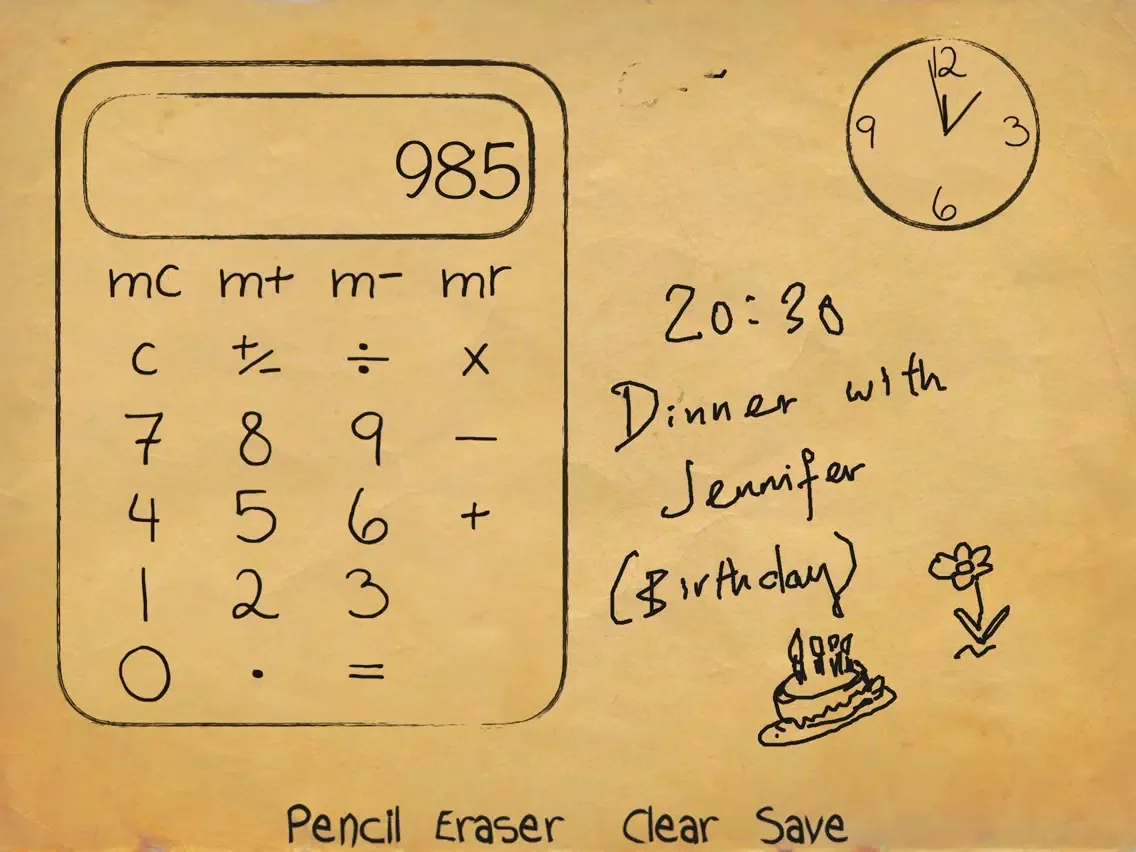 985
mc m+ m- mr
c +/- ÷ x
7 8 9 −
4 5 6 +
1 2 3
0 . =
12
9 3
6
20:30
Dinner with
Jennifer
(Birthday)
Pencil Eraser Clear Save